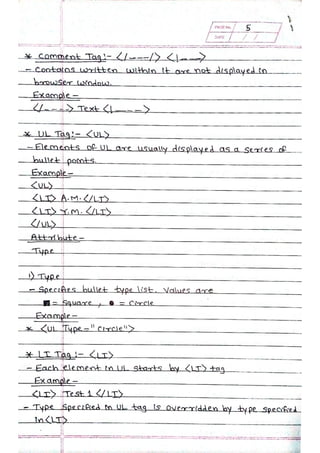 PAGE NO. 5
DATE / /
* Comment Tag:- </---/> <!-->
- Contains written within it are not displayed in
browser window.
Example -
<!---> Text <!---->
* UL Tag:- <UL>
- Elements of UL are usually displayed as a series of
bullet points.
Example -
<UL>
<LI> A.M.</LI>
<LI> Y.M. </LI>
</UL>
Attribute -
Type
1) Type
- Specifies bullet type list. Values are
■ = Square , ● = Circle
Example -
* <UL Type="Circle">
* LI Tag :- <LI>
- Each element in UL starts by <LI> tag
Example -
<LI> Test 1 </LI>
- Type Specified in UL tag is overridden by type specified
in <LI>